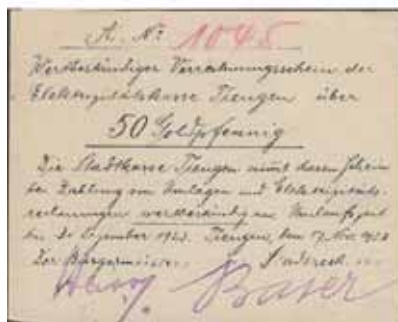 A. Nº 1045
Wertbeständiger Verrechnungsschein der
Elektrizitätskasse Tiengen über
50 Goldpfennig
Die Stadtkasse Tiengen nimmt diesen Schein
bei Zahlung von Umlagen und Elektrizitäts-
rechnungen wertbeständig an. Umlaufszeit
bis 31. Dezember 1923. Tiengen, den 17. Nov. 1923
Der Bürgermeister: